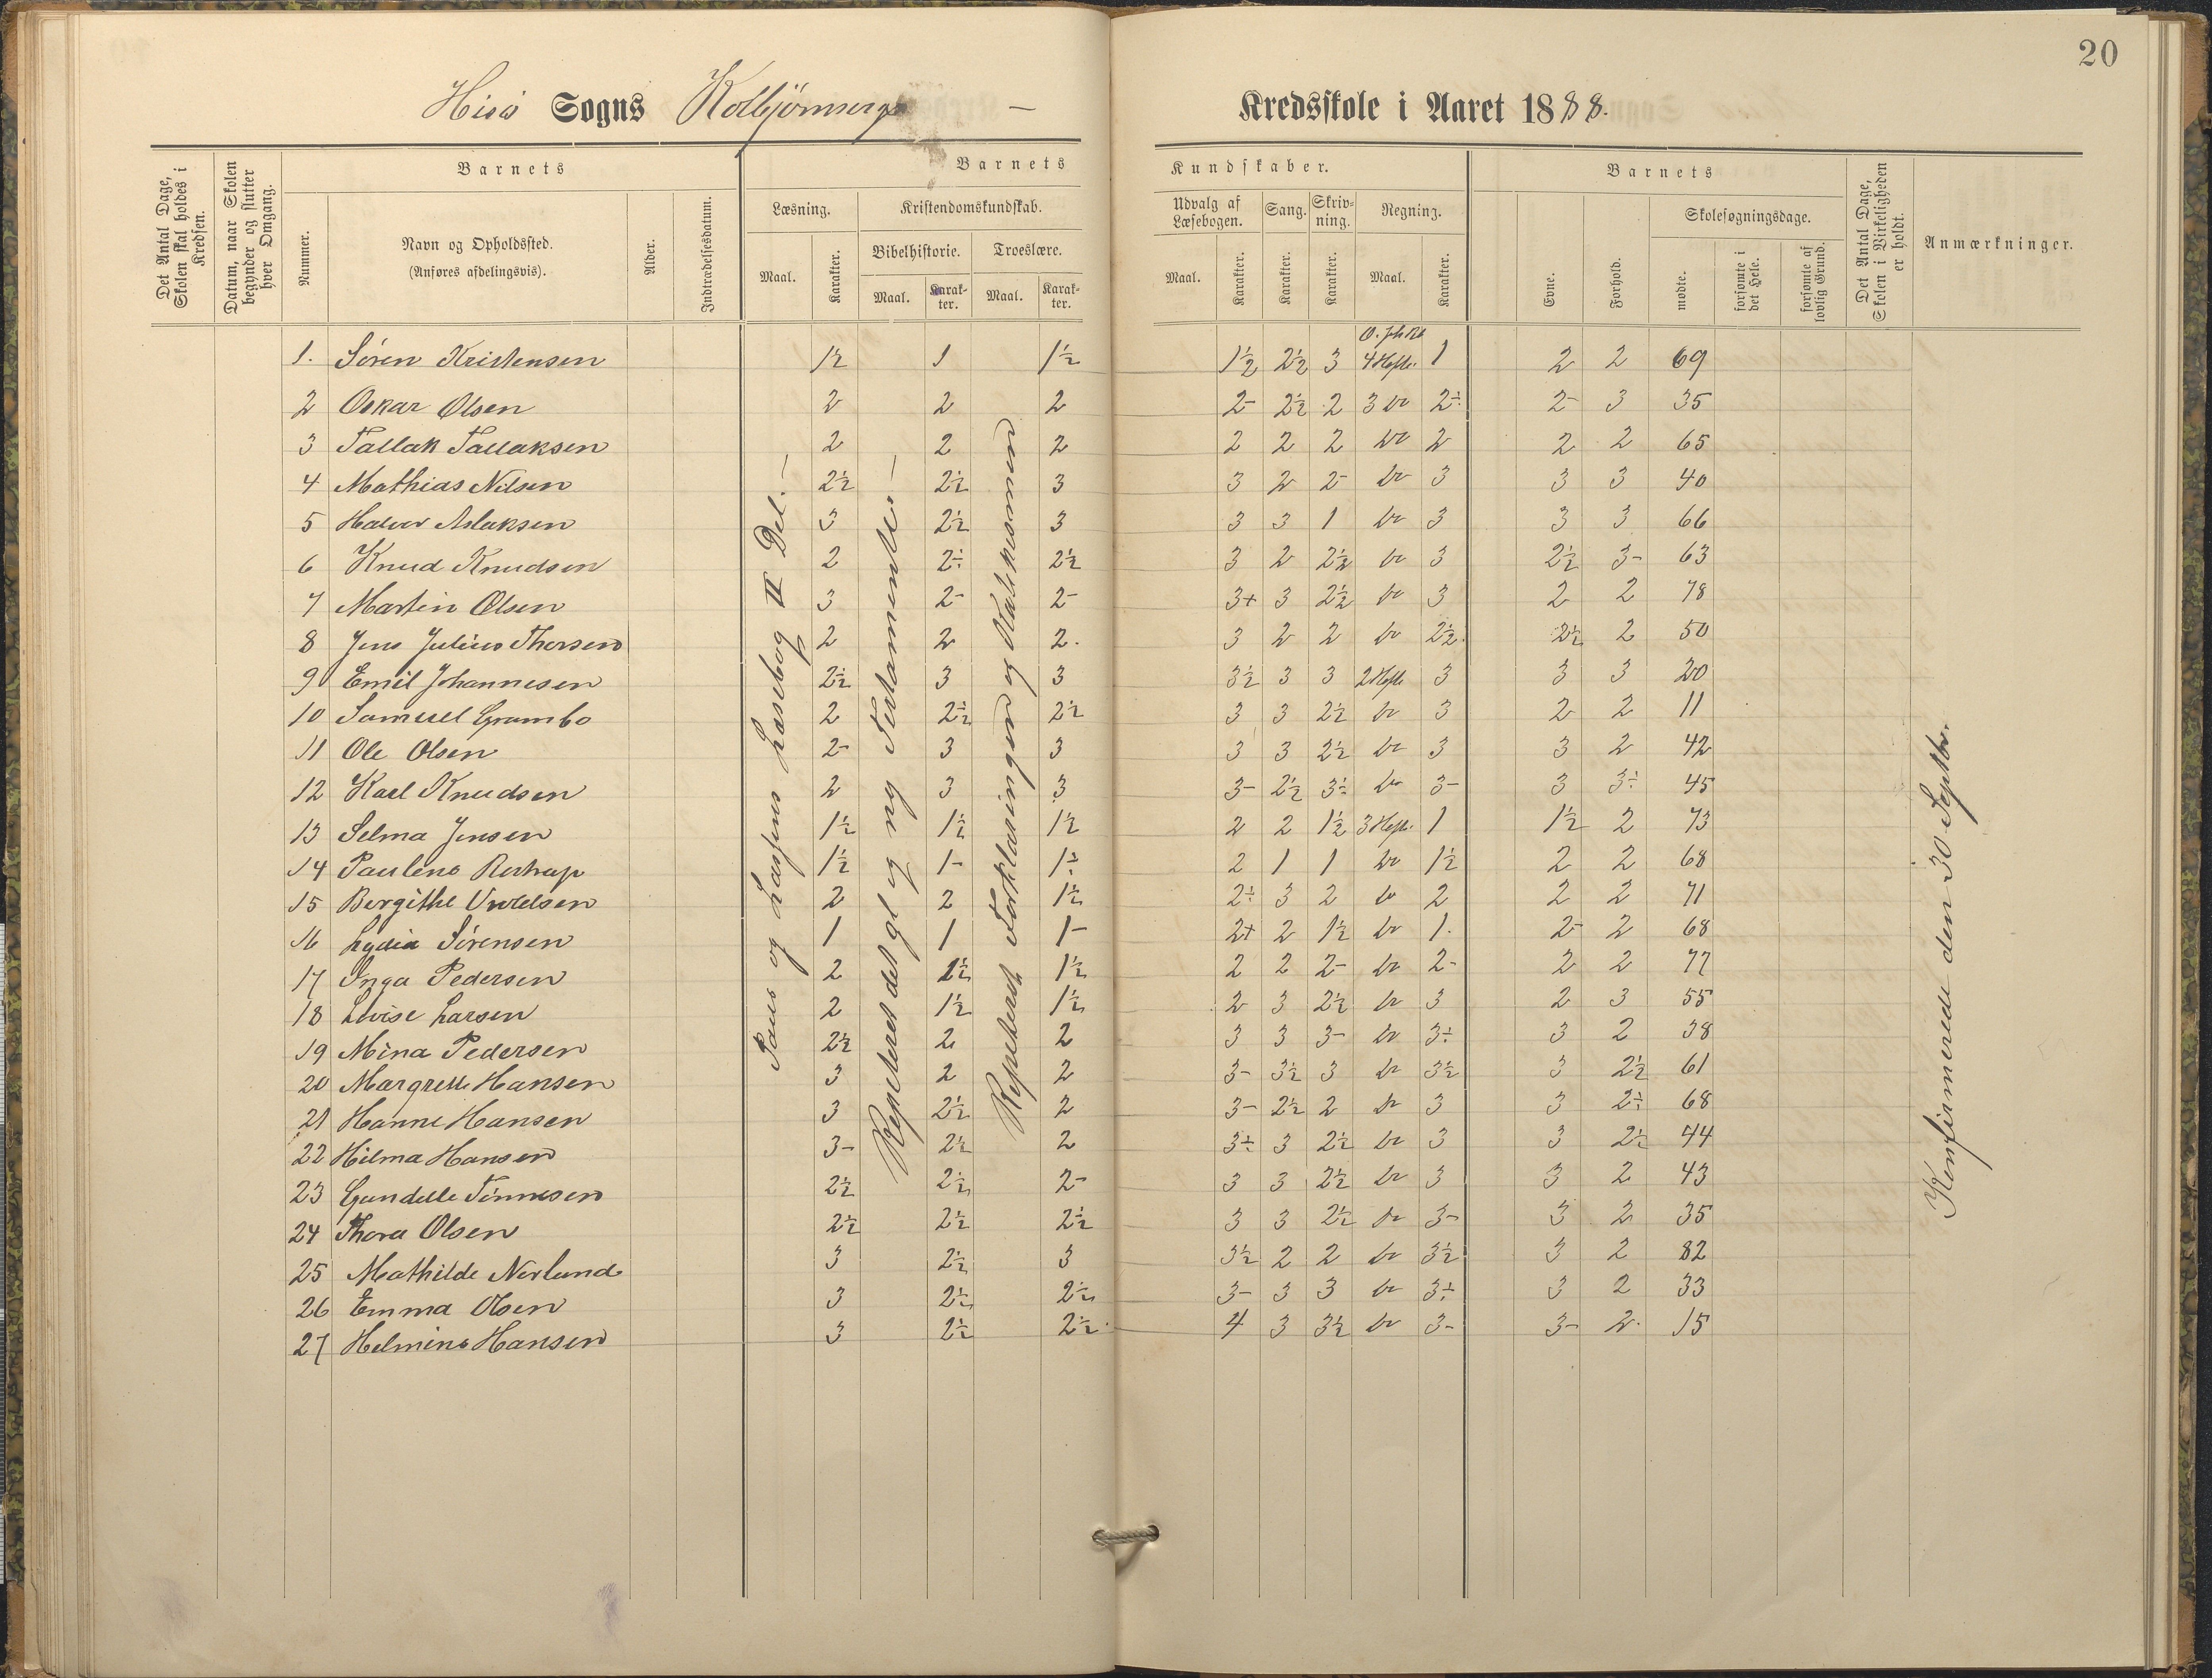 20
Hisö Sogns Kolbjörnsergs — Kredsskole i Aaret 1888.
Det Antal Dage, Skolen skal holdes i Kredsen.
Datum, naar Skolen begynder og slutter hver Omgang.
Barnets
Nummer.
Navn og Opholdssted.
(Anføres afdelingsvis).
Alder.
Indtrædelsesdatum.
Barnets Kundskaber.
Læsning.
Maal. Karakter.
Kristendomskundskab.
Bibelhistorie. Troeslære.
Maal. Karakter. Maal. Karakter.
Udvalg af Læsebogen.
Maal. Karakter.
Sang. Karakter.
Skrivning. Karakter.
Regning.
Maal. Karakter.
Barnets
Evne. Forhold.
Skolesøgningsdage.
mødte. forsømte i det Hele. forsømte af lovlig Grund.
Det Antal Dage, Skolen i Virkeligheden er holdt.
Anmærkninger.
1. Sören Kristensen 1½ 1 1½ 1½ 2½ 3 4 Hefte. 1 2 2 69
2 Oskar Olsen 2 2 2 2- 2½ 2 3 do 2÷ 2- 3 35
3 Tallak Tallaksen 2 2 2 2 2 2 do 2 2 2 65
4 Mathias Nilsen 2½ 2½ 3 3 2 2- do 3 3 3 40
5 Halvor Aslaksen 3 2½ 3 3 3 1 do 3 3 3 66
6 Knud Knudsen 2 2÷ 2½ 3 2 2½ do 3 2½ 3- 63
7 Martin Olsen 3 2- 2- 3+ 3 2½ do 3 2 2 78
8 Jens Julius Thorsen 2 2 2. 3 2 2 do 2½. 2½ 2 50
9 Emil Johannesen 2½ 3 3 3½ 3 3 2 Hefte 3 3 3 20
10 Samuel Grambo 2 2½ 2½ 3 3 2½ do 3 2 2 11
11 Ole Olsen 2- 3 3 3 3 2½ do 3 3 2 42
12 Karl Knudsen 2 3 3 3- 2½ 3÷ do 3- 3 3÷ 45
13 Selma Jensen 1½ 1½ 1½ 2 2 1½ 3 Heft. 1 1½ 2 73
14 Pauline Restrup 1½ 1- 1÷ 2 1 1 do 1½ 2 2 68
15 Bergithe Uvoldsen 2 2 1½ 2÷ 3 2 do 2 2 2 71
16 Lydia Sörensen 1 1 1- 2+ 2 1½ do 1. 2- 2 68
17 Inga Pedersen 2 1½ 1½ 2 2 2- do 2- 2 2 77
18 Lovise Larsen 2 1½ 1½ 2 3 2½ do 3 2 3 55
19 Mina Pedersen 2½ 2 2 3 3 3- do 3÷ 3 2 38
20 Margrethe Hansen 3 2 2 3- 3½ 3 do 3½ 3 2½ 61
21 Hanne Hansen 3 2½ 2 3- 2½ 2 do 3 3 2÷ 68
22 Hilma Hansen 3- 2½ 2 3÷ 3 2½ do 3 3 2½ 44
23 Gundelle Tönnesen 2½ 2½ 2- 3 3 2½ do 3 3 2 43
24 Thora Olsen 2½ 2½ 2½ 3 3 2½ do 3- 3 2 35
25 Mathilde Norlund 3 2½ 3 3½ 2 2 do 3½ 3 2 82
26 Emma Olsen 3 2½ 2½ 3- 3 3 do 3÷ 3 2 33
27 Helmine Hansen 3 2½ 2½. 4 3 3½ do 3- 3- 2. 15
Paus og Lassens Læsebog II Del. —
Repeteret det gl og ny Testamente. —
Repeteret Forklaringen og Katekismen
Konfirmerede den 30 Septbr.